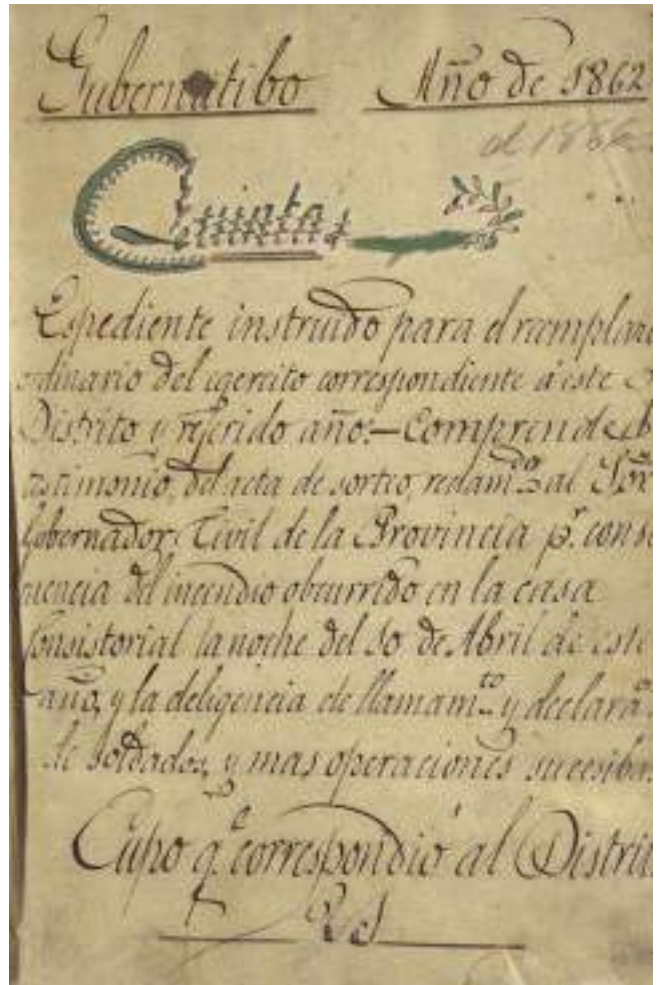 Gubernatibo Año de 1862
Quintas
Espediente instruido para el reemplazo
ordinario del egercito correspondiente á este
Distrito y referido año:— Comprende
testimonio, del acta de sorteo, reclam.do al Sor
Gobernador Civil de la Provincia p.r conse
cuencia del incendio obcurrido en la casa
Consistorial la noche del 10 de Abril de este
año, y la deligencia de llamam.to y declara.n
de soldados, y mas operaciones sucesibas
Cupo q.e correspondió al Distrito